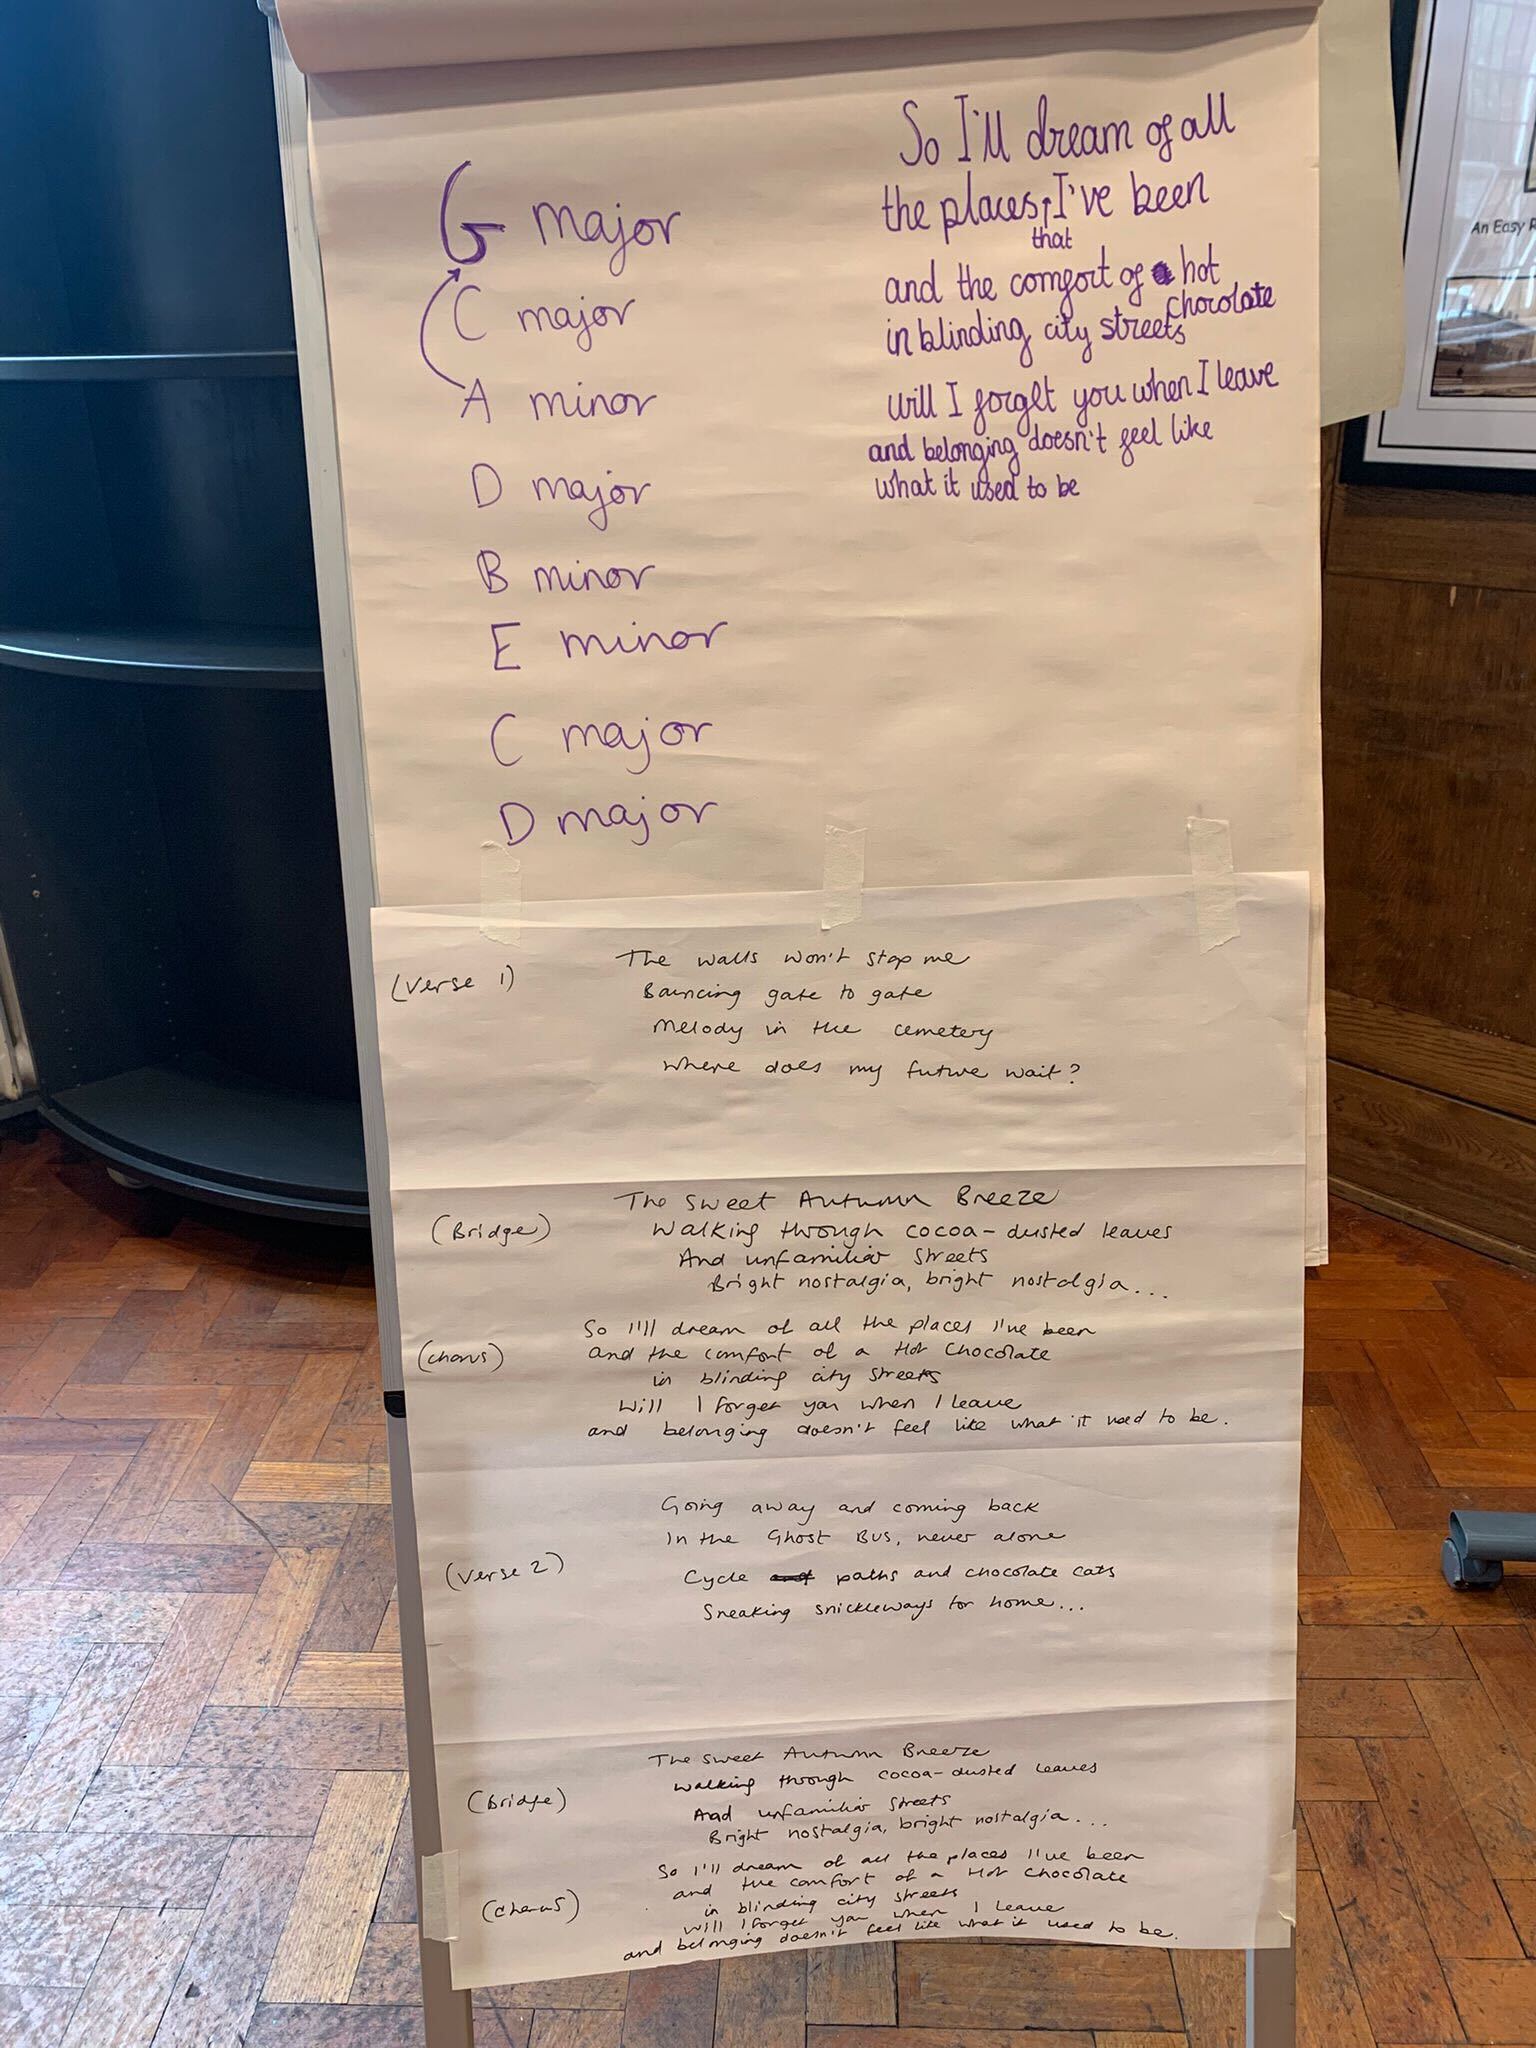 G major
C major
A minor
D major
B minor
E minor
C major
D major
So I'll dream of all
the places, I've been
that
and the comfort of hot
chocolate
in blinding city streets
will I forget you when I leave
and belonging doesn't feel like
what it used to be
An Easy
(Verse 1)
The walls won't stop me
Bouncing gate to gate
Melody in the cemetery
where does my future wait?
(Bridge)
The Sweet Autumn Breeze
Walking through cocoa-dusted leaves
And unfamiliar streets
Bright nostalgia, bright nostalgia...
(chorus)
So I'll dream of all the places I've been
and the comfort of a Hot Chocolate
in blinding city streets
Will I forget you when I leave
and belonging doesn't feel like what it used to be.
(Verse 2)
Going away and coming back
In the Ghost Bus, never alone
Cycle paths and chocolate cats
Sneaking snickleways for home...
(Bridge)
The Sweet Autumn Breeze
Walking through cocoa-dusted leaves
And unfamiliar streets
Bright nostalgia, bright nostalgia...
(chorus)
So I'll dream of all the places I've been
and the comfort of a Hot Chocolate
in blinding city streets
Will I forget you when I leave
and belonging doesn't feel like what it used to be.